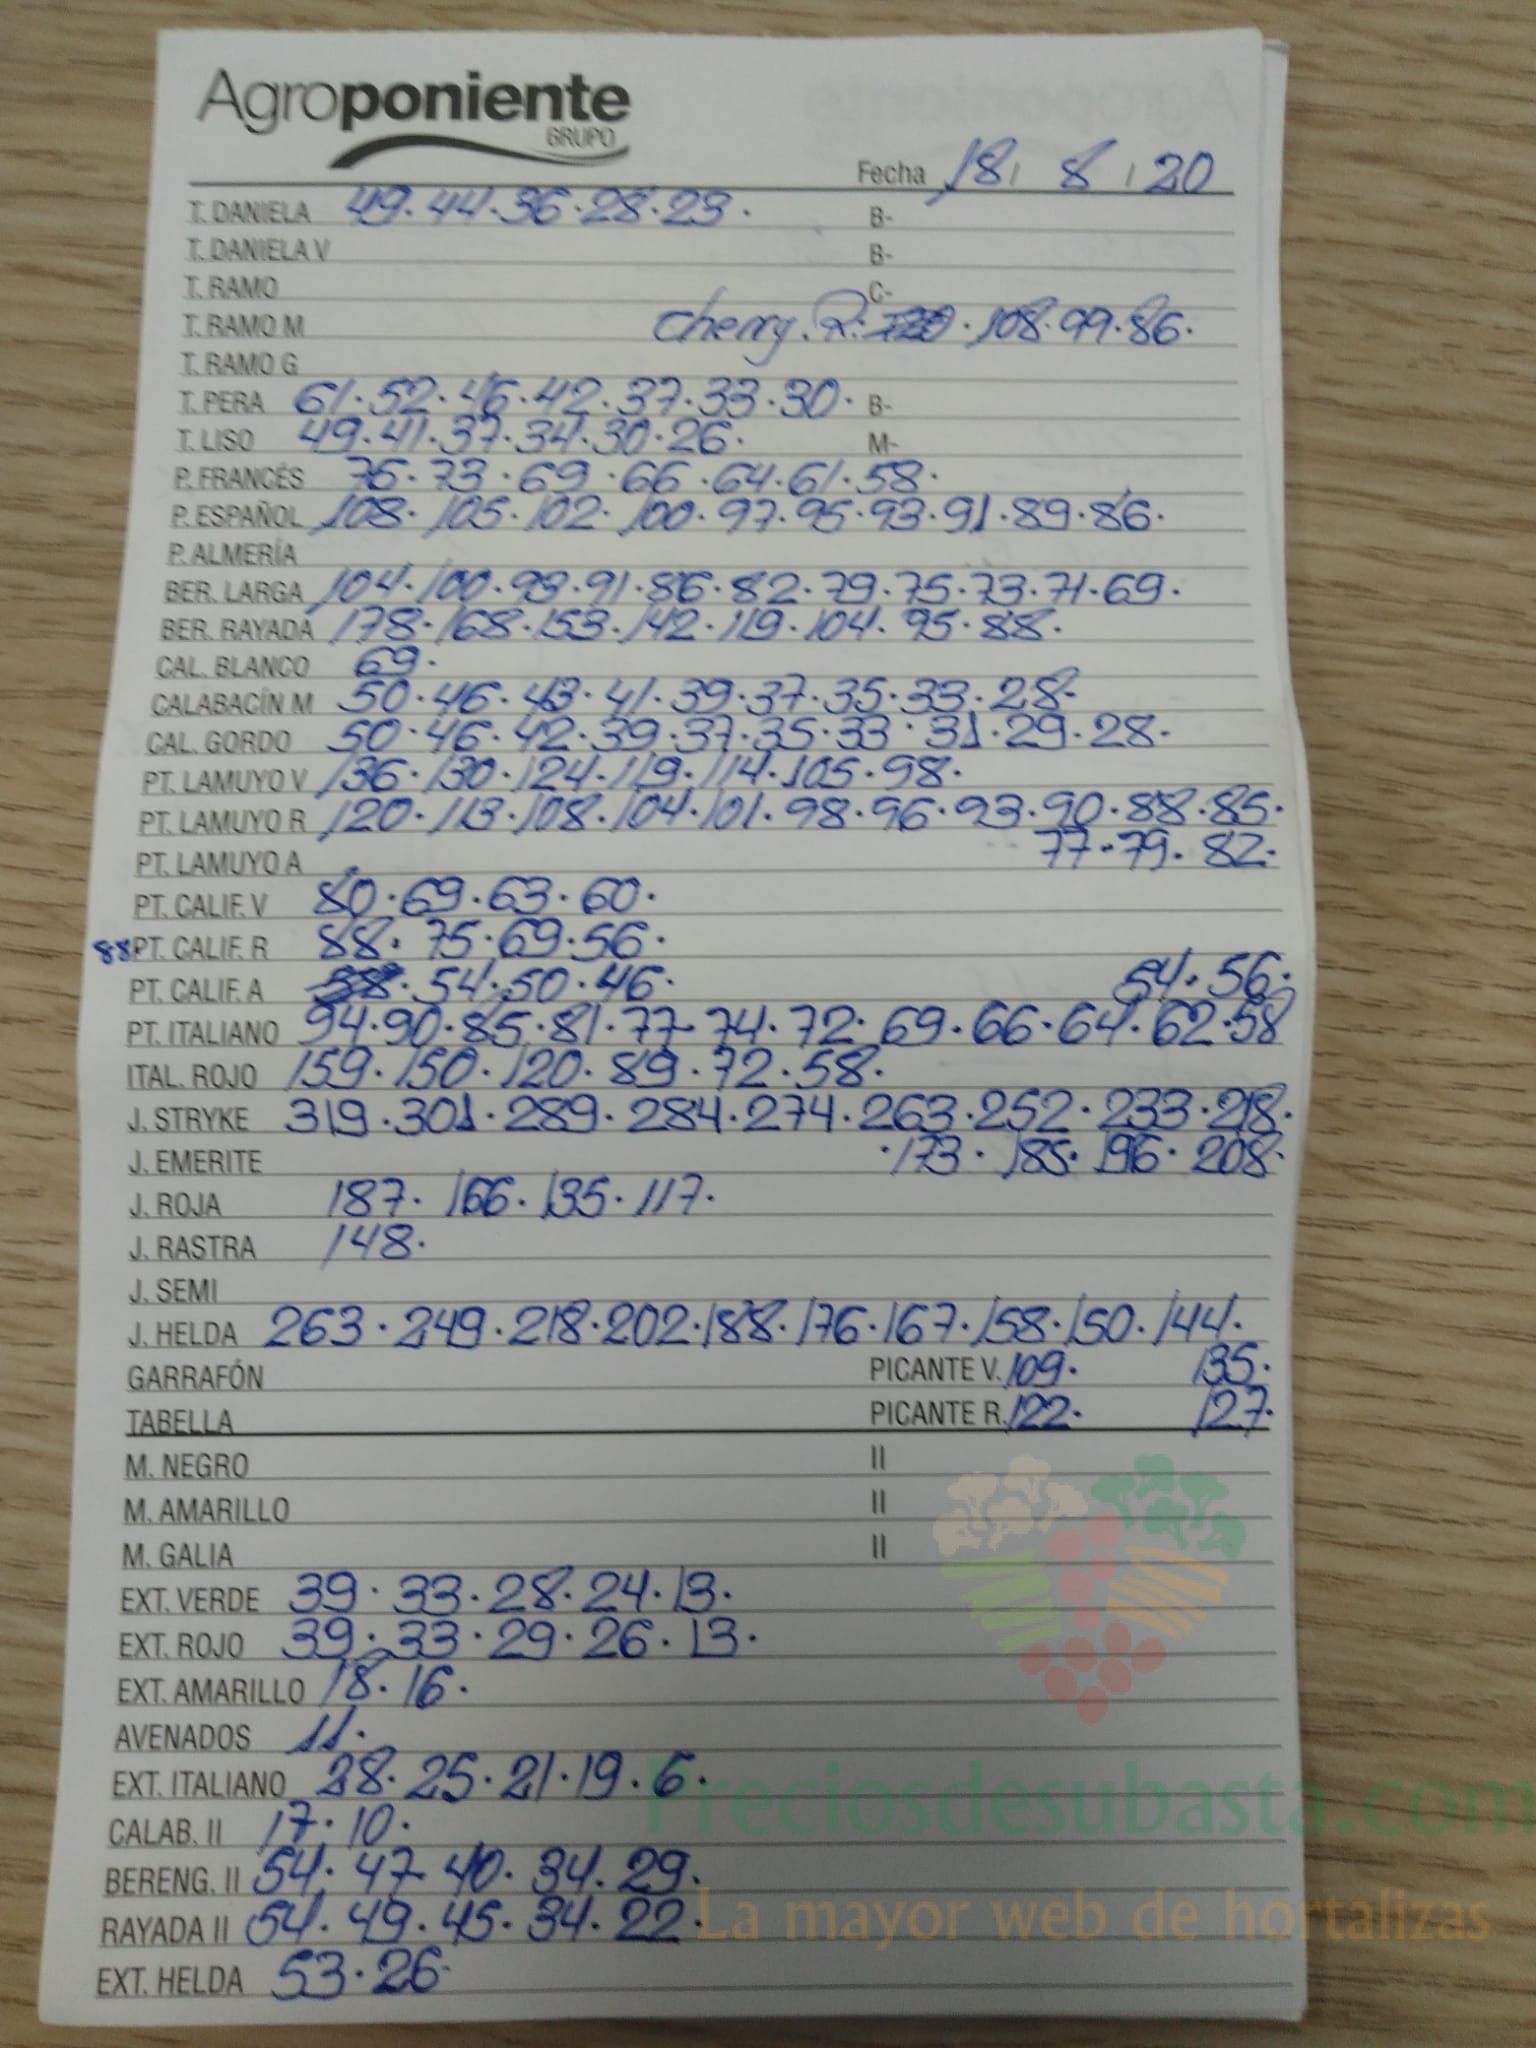 Agroponiente
GRUPO
Fecha 18 / 8 / 20
T. DANIELA 49·44·36·28·23· B-
T. DANIELA V B-
T. RAMO C-
T. RAMO M Cherry. R: 120 · 108·99·86·
T. RAMO G
T. PERA 61·52·46·42·37·33·30· B-
T. LISO 49·41·37·34·30·26· M-
P. FRANCÉS 76·73·69·66·64·61·58·
P. ESPAÑOL 108·105·102·100·97·95·93·91·89·86·
P. ALMERÍA
BER. LARGA 104·100·93·91·86·82·79·75·73·71·69·
BER. RAYADA 178·168·153·142·119·104·95·88·
CAL. BLANCO 69·
CALABACÍN M 50·46·43·41·39·37·35·33·28·
CAL. GORDO 50·46·42·39·37·35·33·31·29·28·
PT. LAMUYO V 136·130·124·119·114·105·98·
PT. LAMUYO R 120·113·108·104·101·98·96·93·90·88·85·
PT. LAMUYO A 77·79·82·
PT. CALIF. V 80·69·63·60·
88· PT. CALIF. R 88·75·69·56·
PT. CALIF. A 54·50·46· 54·56·
PT. ITALIANO 94·90·85·81·77·74·72·69·66·64·62·58
ITAL. ROJO 159·150·120·89·72·58·
J. STRYKE 319·301·289·284·274·263·252·233·218·
J. EMERITE ·173·185·196·208·
J. ROJA 187·166·135·117·
J. RASTRA 148·
J. SEMI
J. HELDA 263·249·218·202·188·176·167·158·150·144·
GARRAFÓN PICANTE V. 109· 135·
TABELLA PICANTE R. 122· 127·
M. NEGRO II
M. AMARILLO II
M. GALIA II
EXT. VERDE 39·33·28·24·13·
EXT. ROJO 39·33·29·26·13·
EXT. AMARILLO 18·16·
AVENADOS 11·
EXT. ITALIANO 28·25·21·19·6·
Preciosdesubasta.com
CALAB. II 17·10·
BERENG. II 54·47·40·34·29·
RAYADA II 54·49·45·34·22·
La mayor web de hortalizas
EXT. HELDA 53·26·